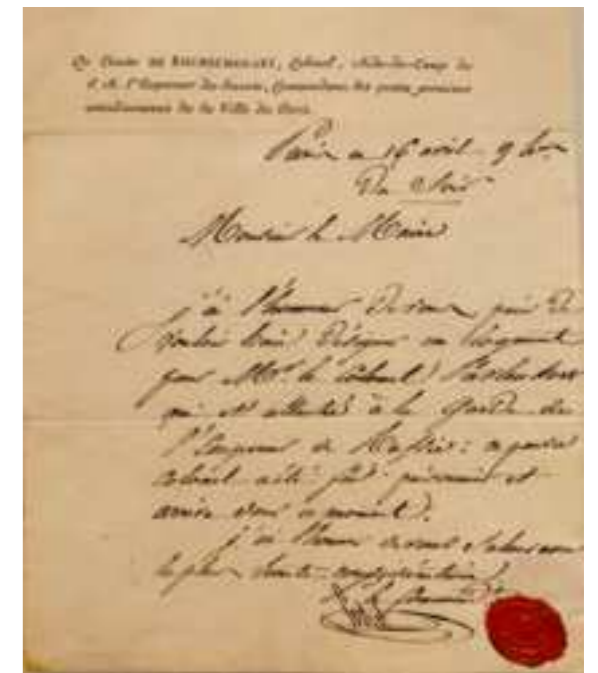 Le Comte DE ROCHECHOUART, Colonel, Aide-de-Camp de
S. M. l'Empereur de Russie, Commandant des
de la Ville de Paris.
Paris ce 16 avril 9 h
Du Soir
Monsieur le Maire
j'ai l'honneur de vous prier de
vouloir bien désigner un logement
pour Mr. le Colonel
qui est attaché à la Garde de
l'Empereur de Russie: ce pauvre
colonel a été fait prisonnier et
arrive dans ce moment.
j'ai l'honneur de vous saluer avec
la plus haute considération